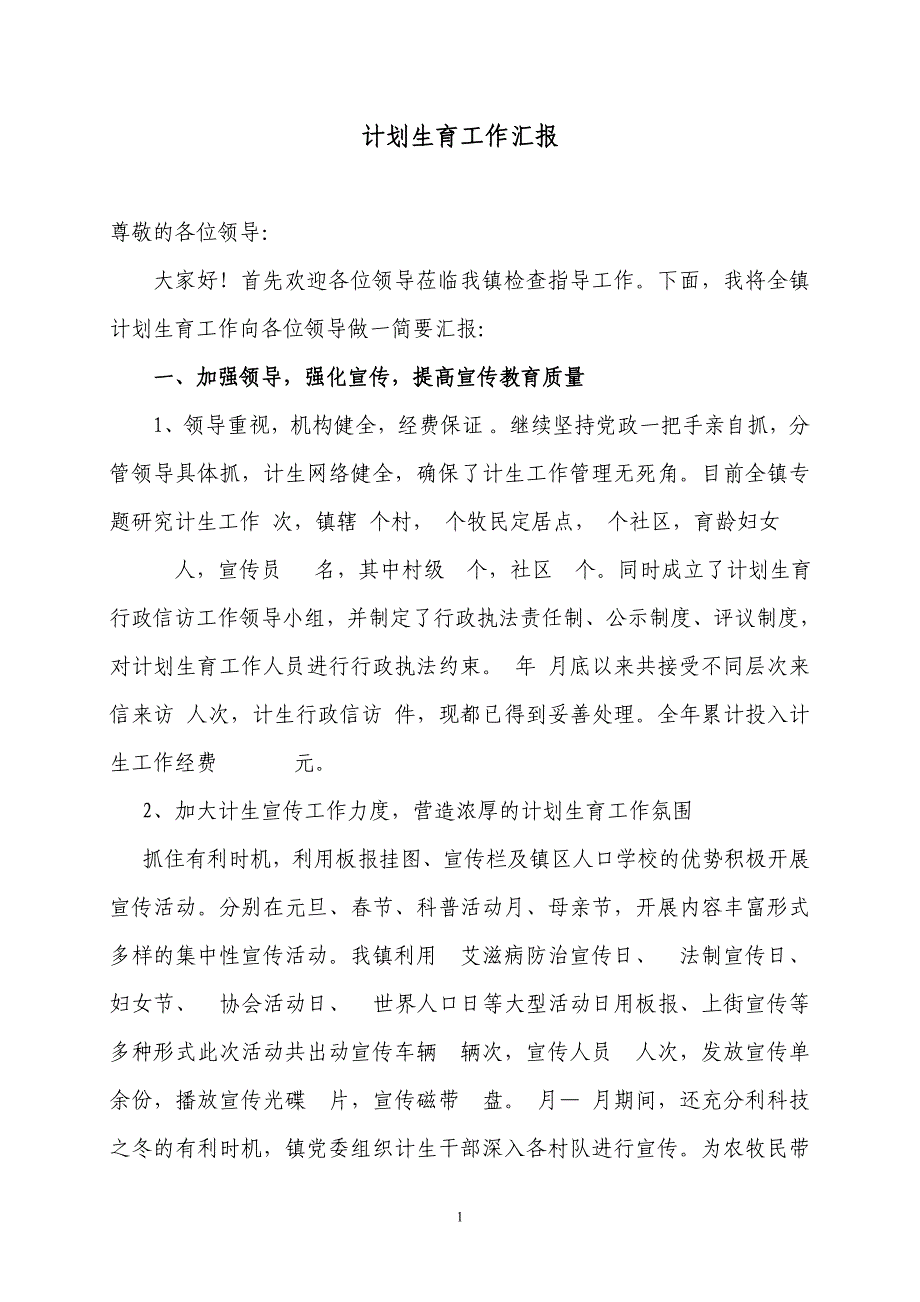 计划生育工作汇报
尊敬的各位领导：
大家好！首先欢迎各位领导莅临我镇检查指导工作。下面，我将全镇
计划生育工作向各位领导做一简要汇报：
一、加强领导，强化宣传，提高宣传教育质量
1、领导重视，机构健全，经费保证 。继续坚持党政一把手亲自抓，分
管领导具体抓，计生网络健全，确保了计生工作管理无死角。目前全镇专
题研究计生工作 次，镇辖 个村， 个牧民定居点， 个社区，育龄妇女
人，宣传员 名，其中村级 个，社区 个。同时成立了计划生育
行政信访工作领导小组，并制定了行政执法责任制、公示制度、评议制度，
对计划生育工作人员进行行政执法约束。 年 月底以来共接受不同层次来
信来访 人次，计生行政信访 件，现都已得到妥善处理。全年累计投入计
生工作经费 元。
2、加大计生宣传工作力度，营造浓厚的计划生育工作氛围
抓住有利时机，利用板报挂图、宣传栏及镇区人口学校的优势积极开展
宣传活动。分别在元旦、春节、科普活动月、母亲节，开展内容丰富形式
多样的集中性宣传活动。我镇利用 艾滋病防治宣传日、 法制宣传日、
妇女节、 协会活动日、 世界人口日等大型活动日用板报、上街宣传等
多种形式此次活动共出动宣传车辆 辆次，宣传人员 人次，发放宣传单
余份，播放宣传光碟 片，宣传磁带 盘。 月— 月期间，还充分利科技
之冬的有利时机，镇党委组织计生干部深入各村队进行宣传。为农牧民带
1